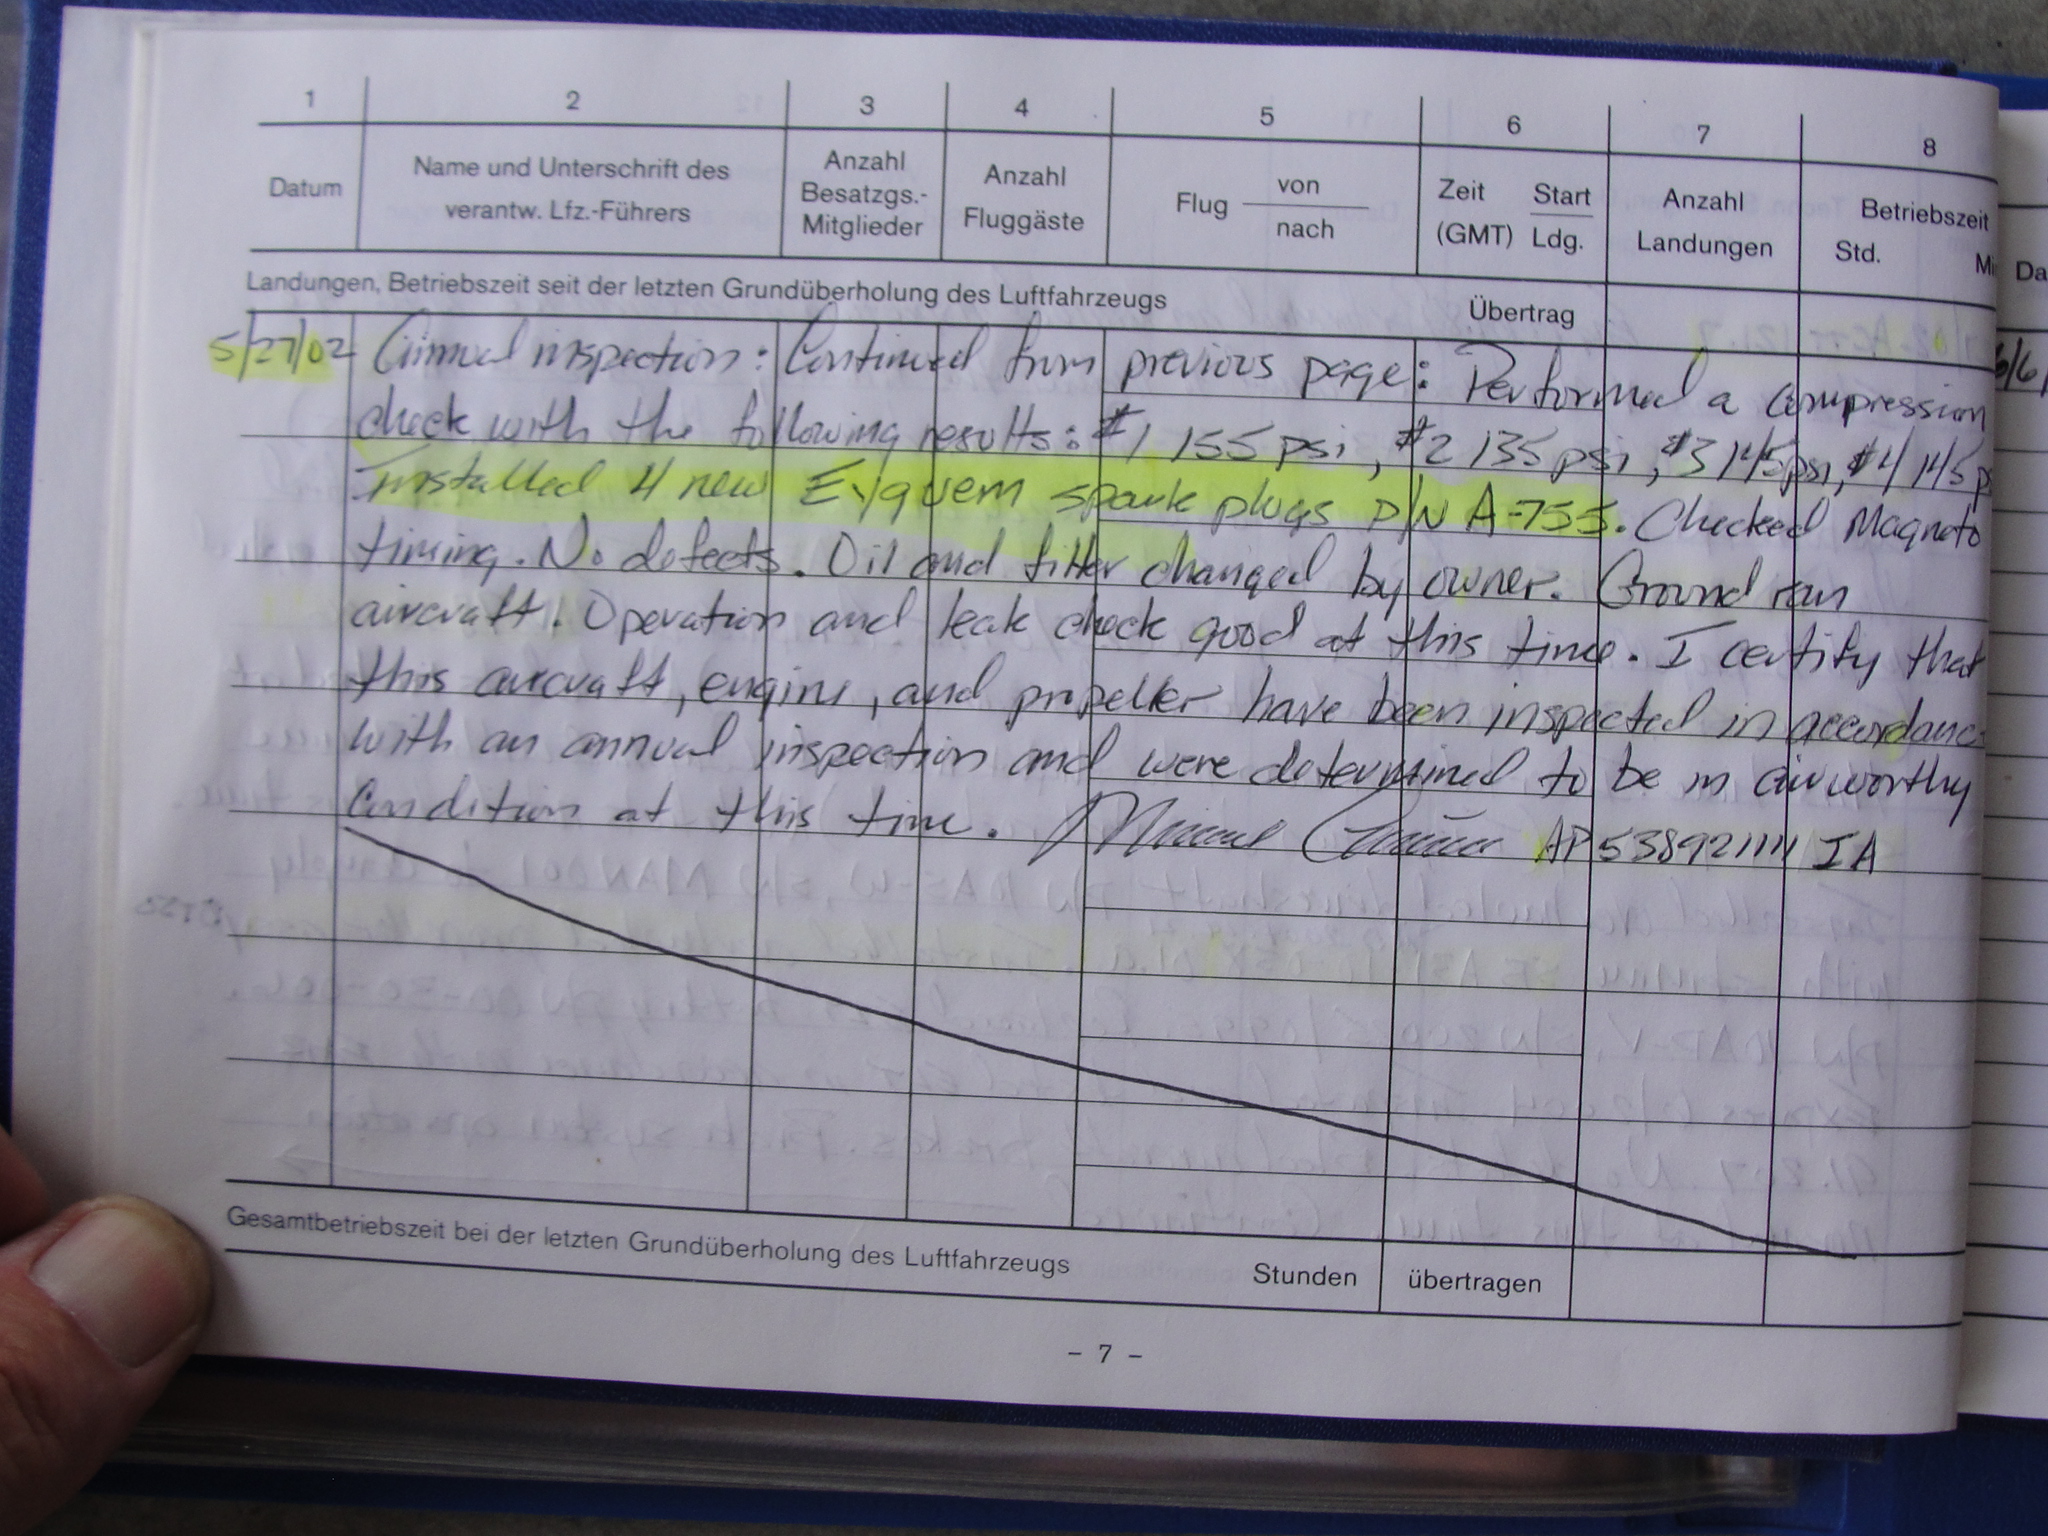 1 2 3 4 5 6 7 8
Datum
Name und Unterschrift des
verantw. Lfz.-Führers
Anzahl
Besatzgs.-
Mitglieder
Anzahl
Fluggäste
Flug von
nach
Zeit Start
(GMT) Ldg.
Anzahl
Landungen
Betriebszeit
Std. Mi
Da
Landungen, Betriebszeit seit der letzten Grundüberholung des Luftfahrzeugs Übertrag
5/27/02 Annual inspection: Continued from previous page: Performed a compression
check with the following results: #1 155 psi, #2 135 psi, #3 145 psi, #4 145 ps
Installed 4 new Eyquem spark plugs P/N A-755. Checked Magneto
timing. No defects. Oil and filter changed by owner. Ground ran
aircraft. Operation and leak check good at this time. I certify that
this aircraft, engine, and propeller have been inspected in accordanc
with an annual inspection and were determined to be in airworthy
Condition at this time. AP IA
6/6/
Gesamtbetriebszeit bei der letzten Grundüberholung des Luftfahrzeugs Stunden übertragen
- 7 -